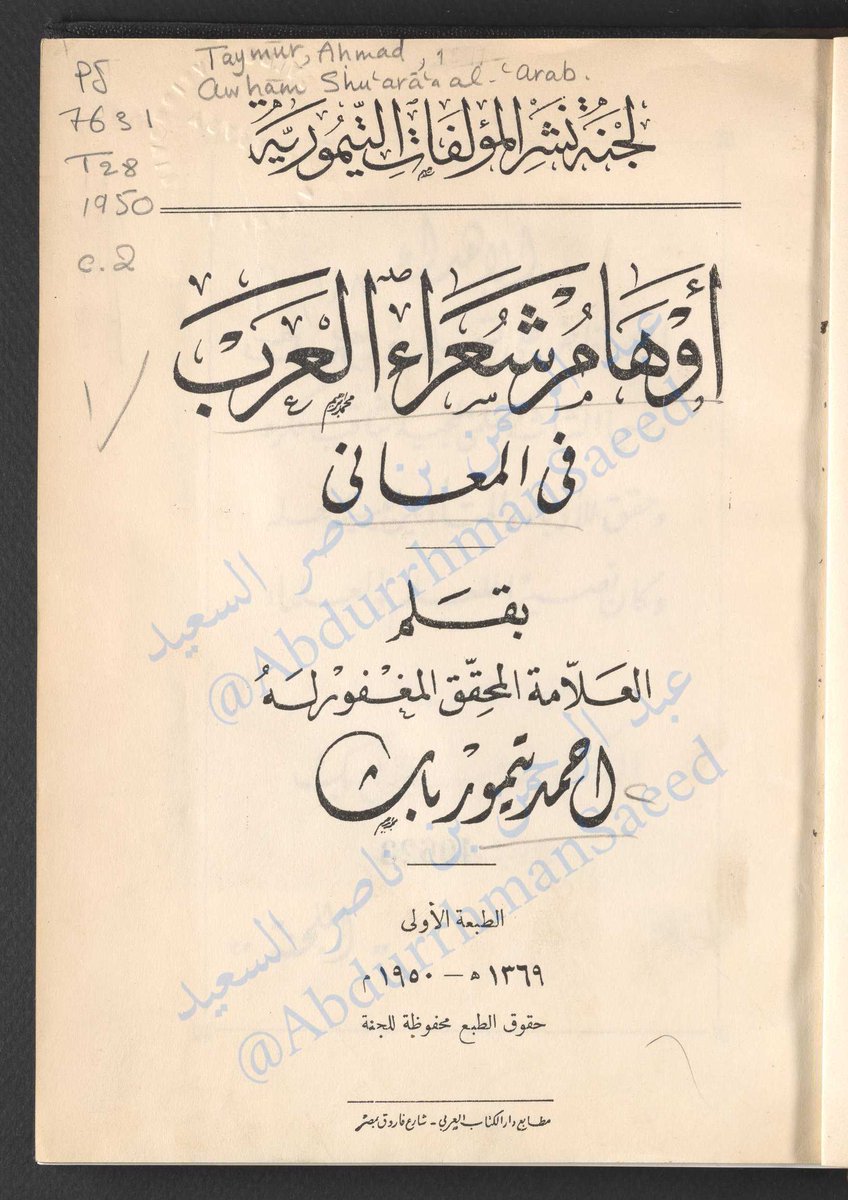 Taymūr, Ahmad, 1
Awhām Shuʿarāʾa al-ʿArab.
PJ
7631
T28
1950
c.2
لجنة نشر المؤلفات التيمورية
أوهام شعراء العرب
في المعاني
بقلم
العلامة المحقق المغفور له
احمد تيمور باشا
الطبعة الأولى
١٣٦٩ هـ - ١٩٥٠ م
حقوق الطبع محفوظة للجنة
مطابع دار الكتاب العربي - شارع فاروق بمصر
عبد الرحمن بن ناصر السعيد
@AbdurrhmanSaeed
عبد الرحمن بن ناصر السعيد
@AbdurrhmanSaeed